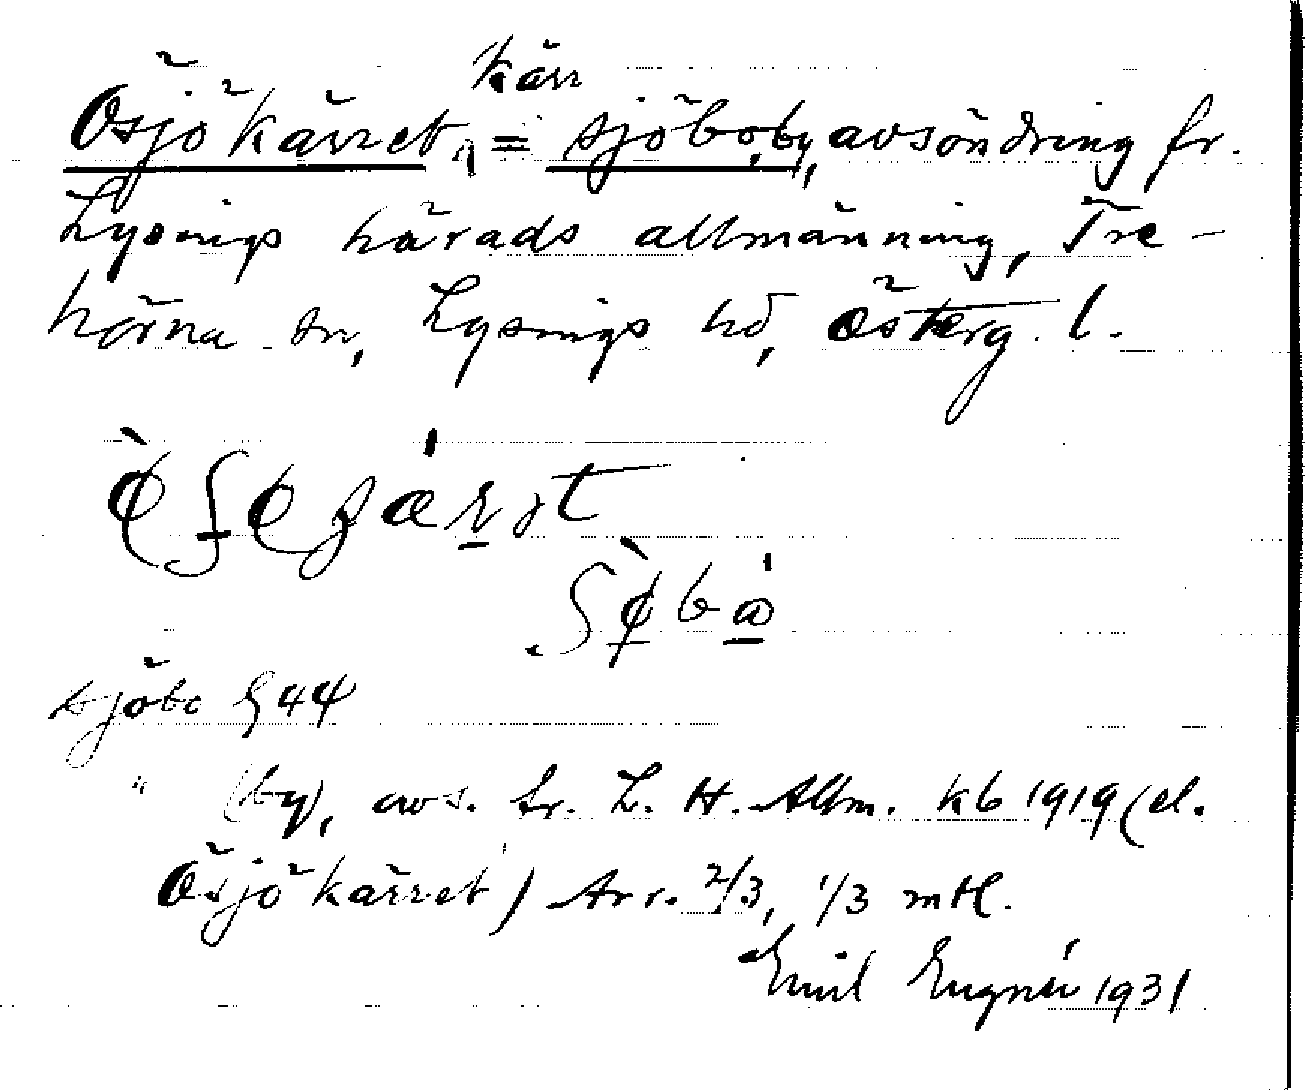 kärr
Ösjökärret, = Sjöbo, by, avsöndring fr.
Lysings härads allmänning, Tre-
hörna sn, Lysings hd, Österg. l.
Sjöbo § 44
" (by), avs. fr. L. H. Allm. kb 1919 (el.
Ösjökärret) Arr. 2/3, 1/3 mtl.
Emil Eugnér 1931